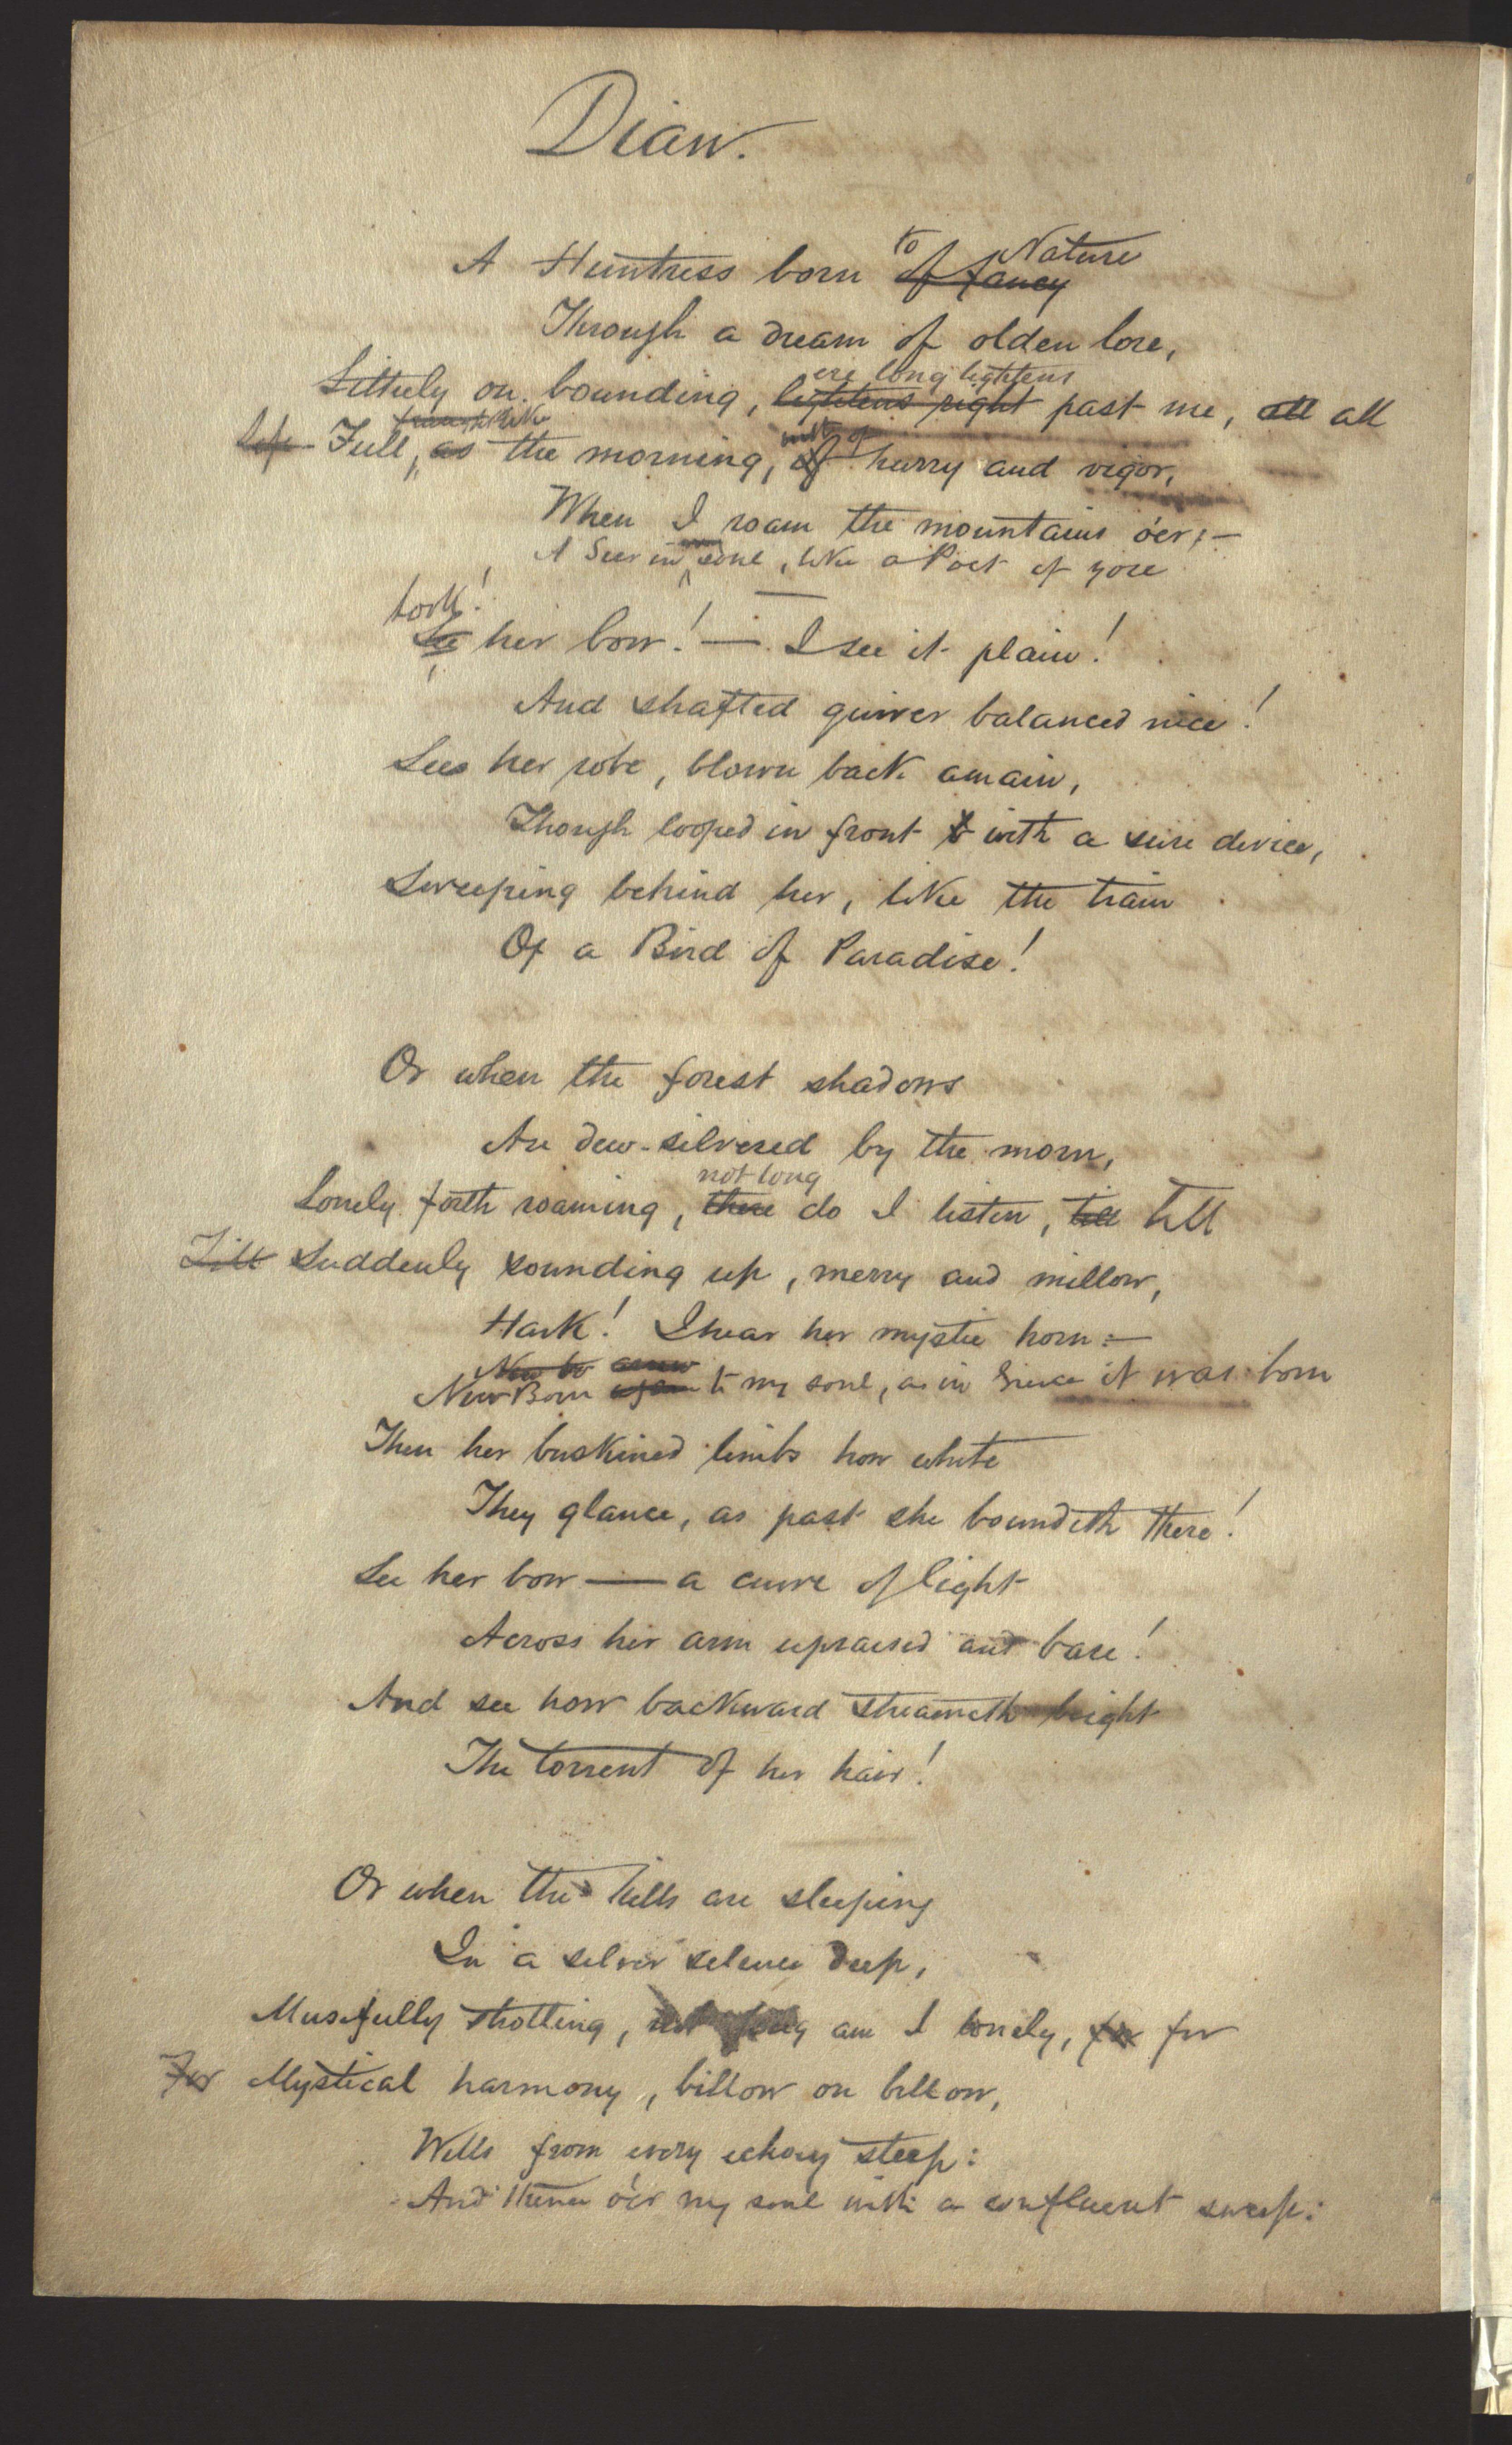 Dian.
to Nature
A Huntress born of fancy
Through a dream of olden lore,
ere long lightens
Lithely on bounding, lightens right past me, all all
like
Full, as the morning, of hurry and vigor,
When I roam the mountains o'er;—
A Seer in soul, like a Poet of yore
look!
See her bow!— I see it plain!
And shafted quiver balanced nice!
Sees her robe, blown back amain,
Though looped in front with a sure device,
Sweeping behind her, like the train
Of a Bird of Paradise!
Or when the forest shadows
Are dew-silvered by the morn,
not long
Lonely forth roaming, there do I listen, till till
Till Suddenly sounding up, merry and mellow,
Hark! I hear her mystic horn:—
New anew
New Born again to my soul, as in Greece it was born
Then her buskined limbs how white
They glance, as past she boundeth there!
See her bow — a curve of light
Across her arm upraised and bare!
And see how backward streameth bright
The torrent of her hair!
Or when the hills are sleeping
In a silver silence deep,
Musefully strolling, not long am I lonely, for for
For Mystical harmony, billow on billow,
Wells from every echoey steep:
And thence o'er my soul with a confluent sweep: